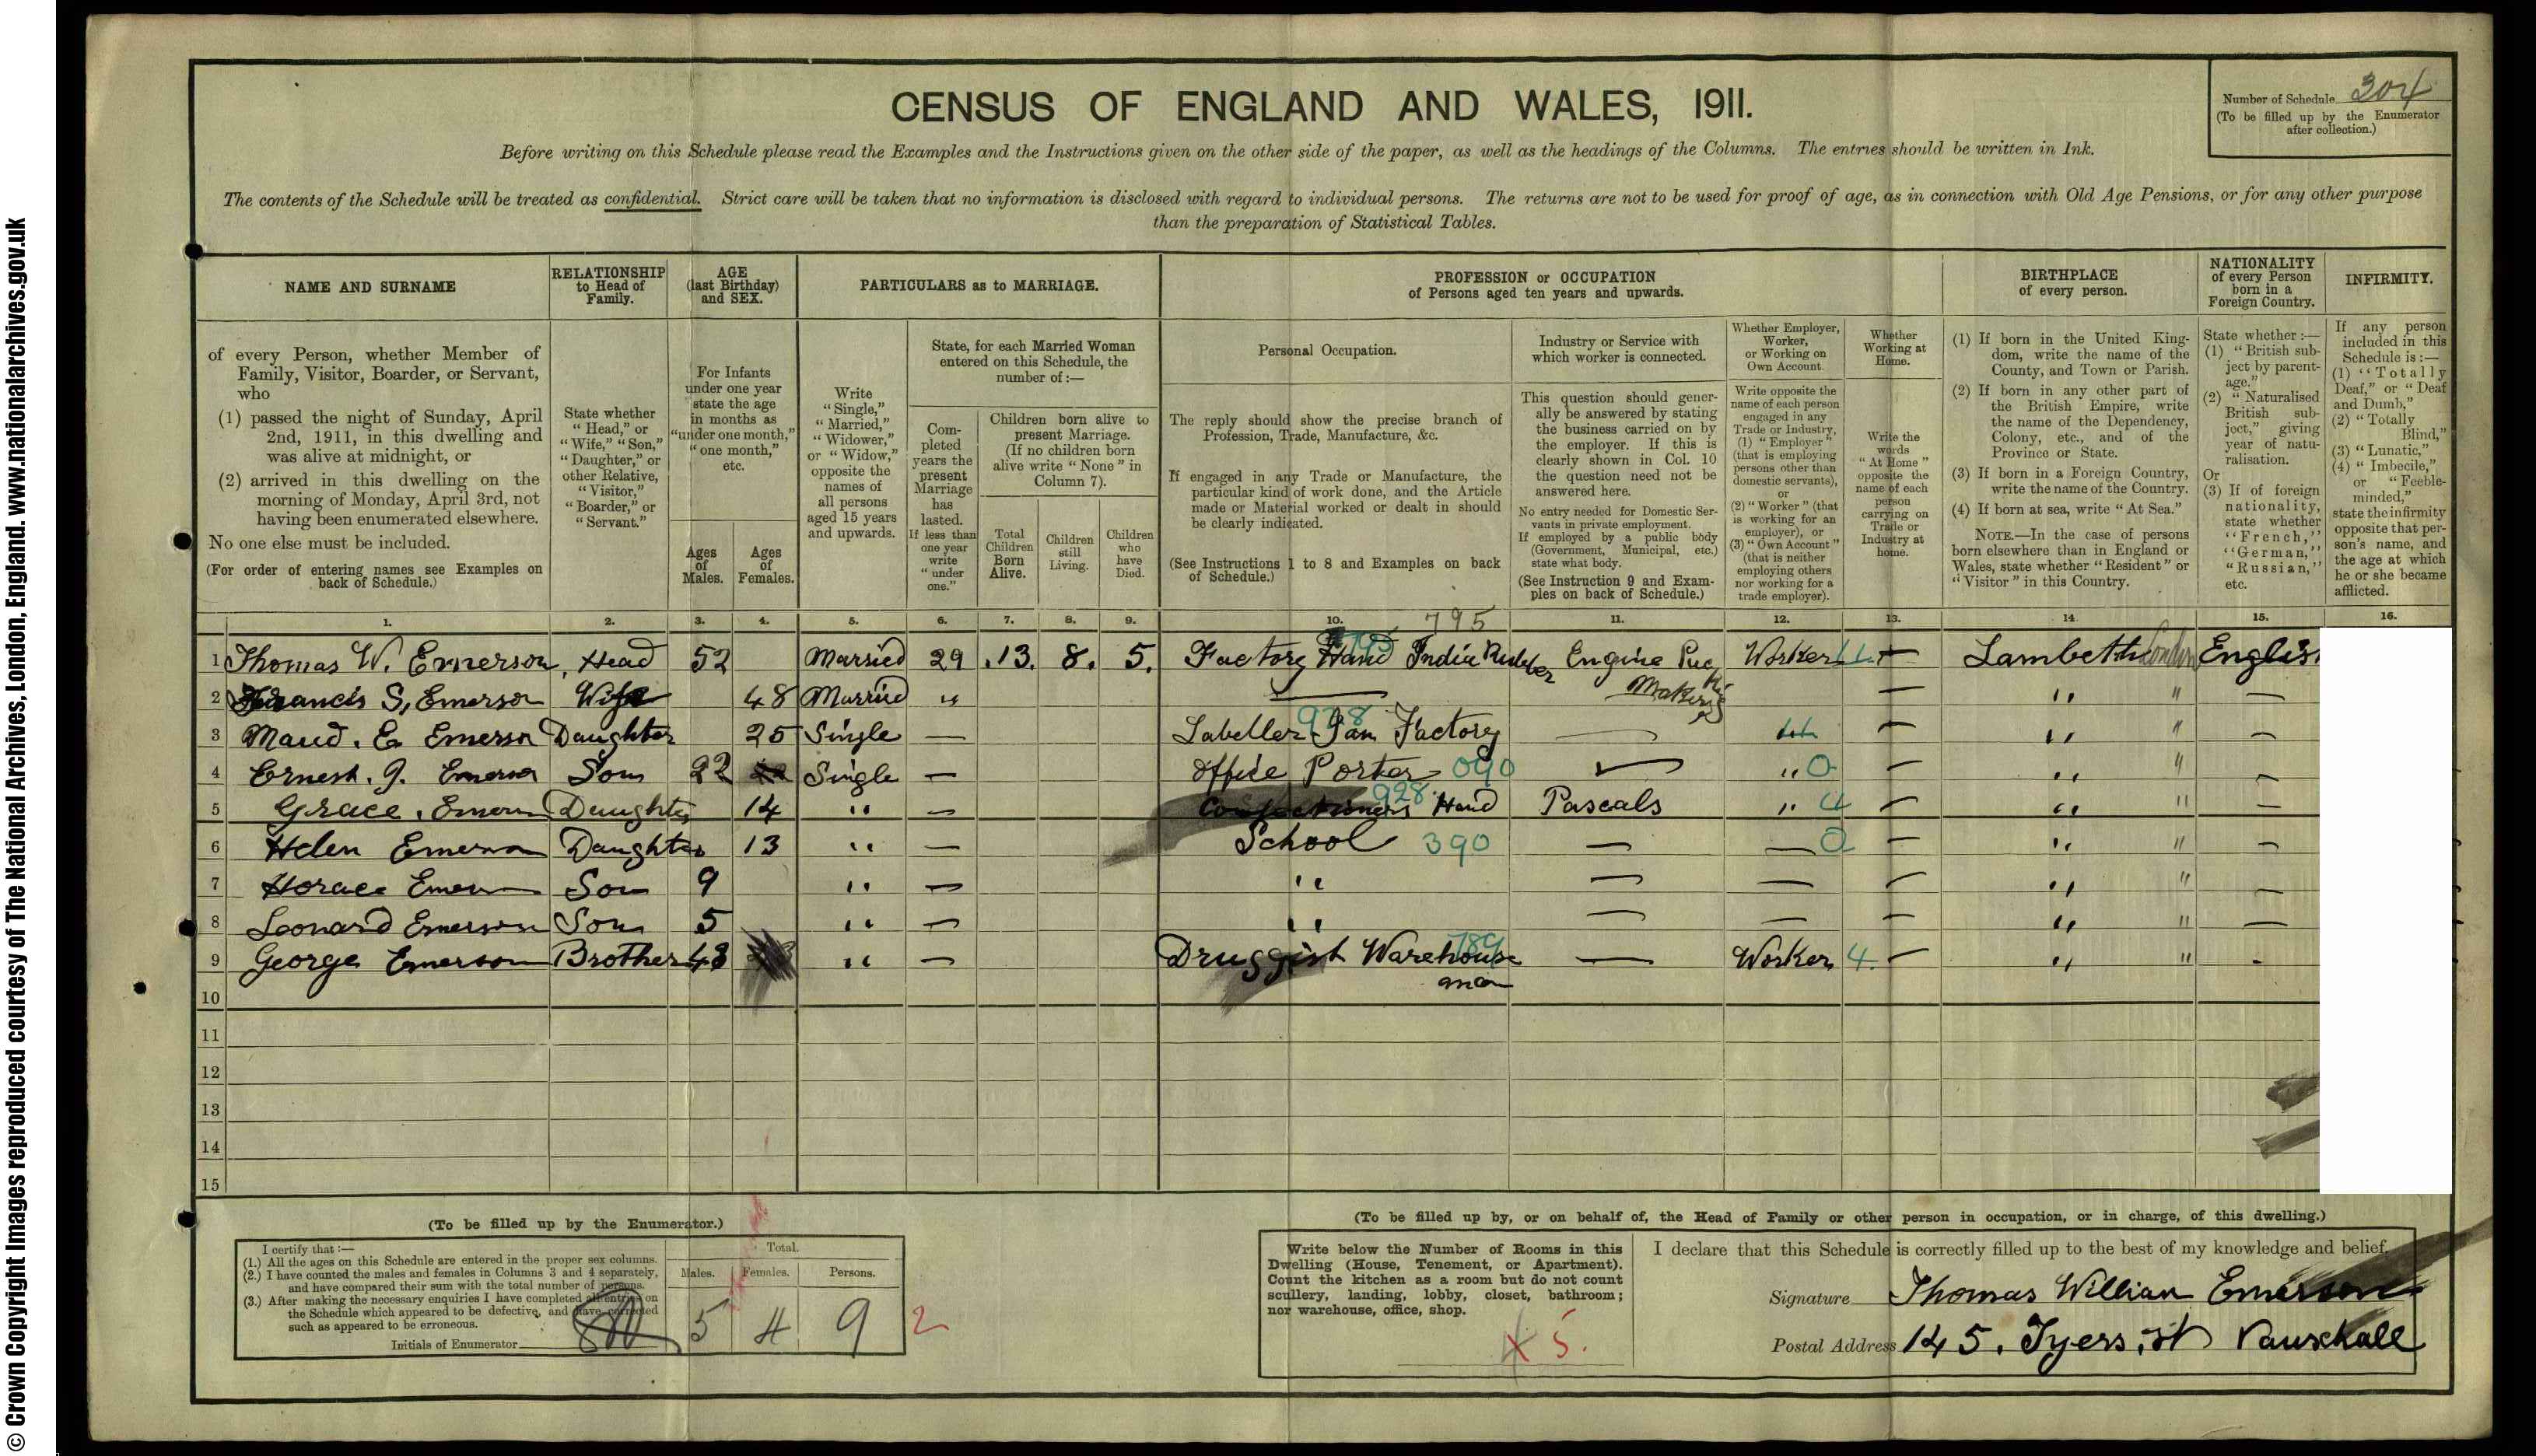 © Crown Copyright Images reproduced courtesy of The National Archives, London, England. www.nationalarchives.gov.uk
CENSUS OF ENGLAND AND WALES, 1911.
Number of Schedule 304
(To be filled up by the Enumerator
after collection.)
Before writing on this Schedule please read the Examples and the Instructions given on the other side of the paper, as well as the headings of the Columns. The entries should be written in Ink.
The contents of the Schedule will be treated as confidential. Strict care will be taken that no information is disclosed with regard to individual persons. The returns are not to be used for proof of age, as in connection with Old Age Pensions, or for any other purpose
than the preparation of Statistical Tables.
NAME AND SURNAME
of every Person, whether Member of
Family, Visitor, Boarder, or Servant,
who
(1) passed the night of Sunday, April
2nd, 1911, in this dwelling and
was alive at midnight, or
(2) arrived in this dwelling on the
morning of Monday, April 3rd, not
having been enumerated elsewhere.
No one else must be included.
(For order of entering names see Examples on
back of Schedule.)
RELATIONSHIP
to Head of
Family.
State whether
"Head," or
"Wife," "Son,"
"Daughter," or
other Relative,
"Visitor,"
"Boarder," or
"Servant."
AGE
(last Birthday)
and SEX.
For Infants
under one year
state the age
in months as
"under one month,"
"one month,"
etc.
Ages
of
Males.
Ages
of
Females.
PARTICULARS as to MARRIAGE.
Write
"Single,"
"Married,"
"Widower,"
or "Widow,"
opposite the
names of
all persons
aged 15 years
and upwards.
State, for each Married Woman
entered on this Schedule, the
number of :—
Com-
pleted
years the
present
Marriage
has
lasted.
If less than
one year
write
"under
one."
Children born alive to
present Marriage.
(If no children born
alive write "None" in
Column 7).
Total
Children
Born
Alive.
Children
still
Living.
Children
who
have
Died.
PROFESSION or OCCUPATION
of Persons aged ten years and upwards.
Personal Occupation.
The reply should show the precise branch of
Profession, Trade, Manufacture, &c.
If engaged in any Trade or Manufacture, the
particular kind of work done, and the Article
made or Material worked or dealt in should
be clearly indicated.
(See Instructions 1 to 8 and Examples on back
of Schedule.)
Industry or Service with
which worker is connected.
This question should gener-
ally be answered by stating
the business carried on by
the employer. If this is
clearly shown in Col. 10
the question need not be
answered here.
No entry needed for Domestic Ser-
vants in private employment.
If employed by a public body
(Government, Municipal, etc.)
state what body.
(See Instruction 9 and Exam-
ples on back of Schedule.)
Whether Employer,
Worker,
or Working on
Own Account.
Write opposite the
name of each person
engaged in any
Trade or Industry,
(1) "Employer"
(that is employing
persons other than
domestic servants),
or
(2) "Worker" (that
is working for an
employer), or
(3) "Own Account"
(that is neither
employing others
nor working for a
trade employer).
Whether
Working at
Home.
Write the
words
"At Home"
opposite the
name of each
person
carrying on
Trade or
Industry at
home.
BIRTHPLACE
of every person.
(1) If born in the United King-
dom, write the name of the
County, and Town or Parish.
(2) If born in any other part of
the British Empire, write
the name of the Dependency,
Colony, etc., and of the
Province or State.
(3) If born in a Foreign Country,
write the name of the Country.
(4) If born at sea, write "At Sea."
NOTE.—In the case of persons
born elsewhere than in England or
Wales, state whether "Resident" or
"Visitor" in this Country.
NATIONALITY
of every Person
born in a
Foreign Country.
State whether :—
(1) "British sub-
ject by parent-
age."
(2) "Naturalised
British sub-
ject," giving
year of natu-
ralisation.
Or
(3) If of foreign
nationality,
state whether
"French,"
"German,"
"Russian,"
etc.
INFIRMITY.
If any person
included in this
Schedule is :—
(1) "Totally
Deaf," or "Deaf
and Dumb,"
(2) "Totally
Blind,"
(3) "Lunatic,"
(4) "Imbecile,"
or "Feeble-
minded,"
state the infirmity
opposite that per-
son's name, and
the age at which
he or she became
afflicted.
1. 2. 3. 4. 5. 6. 7. 8. 9. 10. 795 11. 12. 13. 14. 15. 16.
1 Thomas W. Emerson, Head 52 Married 29 .13. 8. 5. Factory Hand India Rubber Engine Making Worker — Lambeth London
2 Francis S, Emerson Wife 48 Married " — — " " —
3 Maud. E Emerson Daughter 25 Single — Labeller Jam Factory 928 — — " " —
4 Ernest. J. Emerson Son 22 Single — Office Porter 090 " 0 — " " —
5 Grace. Emerson Daughter 14 " — Confectioners Hand 928 Pascals " 4 — " " —
6 Helen Emerson Daughter 13 " — School 390 — — 0 — " " —
7 Horace Emerson Son 9 " — " — — — " " —
8 Leonard Emerson Son 5 " — " — — — " " —
9 George Emerson Brother 43 " — Druggist Warehouse man — Worker 4 — " " -
10
11
12
13
14
15
(To be filled up by the Enumerator.)
I certify that :—
(1.) All the ages on this Schedule are entered in the proper sex columns.
(2.) I have counted the males and females in Columns 3 and 4 separately,
and have compared their sum with the total number of persons.
(3.) After making the necessary enquiries I have completed all entries on
the Schedule which appeared to be defective, and have corrected
such as appeared to be erroneous.
Initials of Enumerator
Total.
Males. Females. Persons.
5 4 9 2
(To be filled up by, or on behalf of, the Head of Family or other person in occupation, or in charge, of this dwelling.)
Write below the Number of Rooms in this
Dwelling (House, Tenement, or Apartment).
Count the kitchen as a room but do not count
scullery, landing, lobby, closet, bathroom;
nor warehouse, office, shop.
5.
I declare that this Schedule is correctly filled up to the best of my knowledge and belief.
Signature Thomas William Emerson
Postal Address 145, Tyers, St Vauxhall